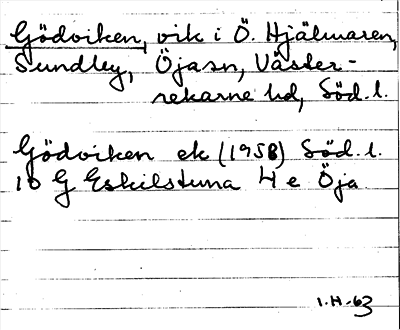 Gödviken, vik i Ö. Hjälmaren,
Sundby, Öja sn, Väster-
rekarne hd, Söd. l.
Gödviken ek (1958) Söd. l.
10 G Eskilstuna 4 e Öja
1.H.-63